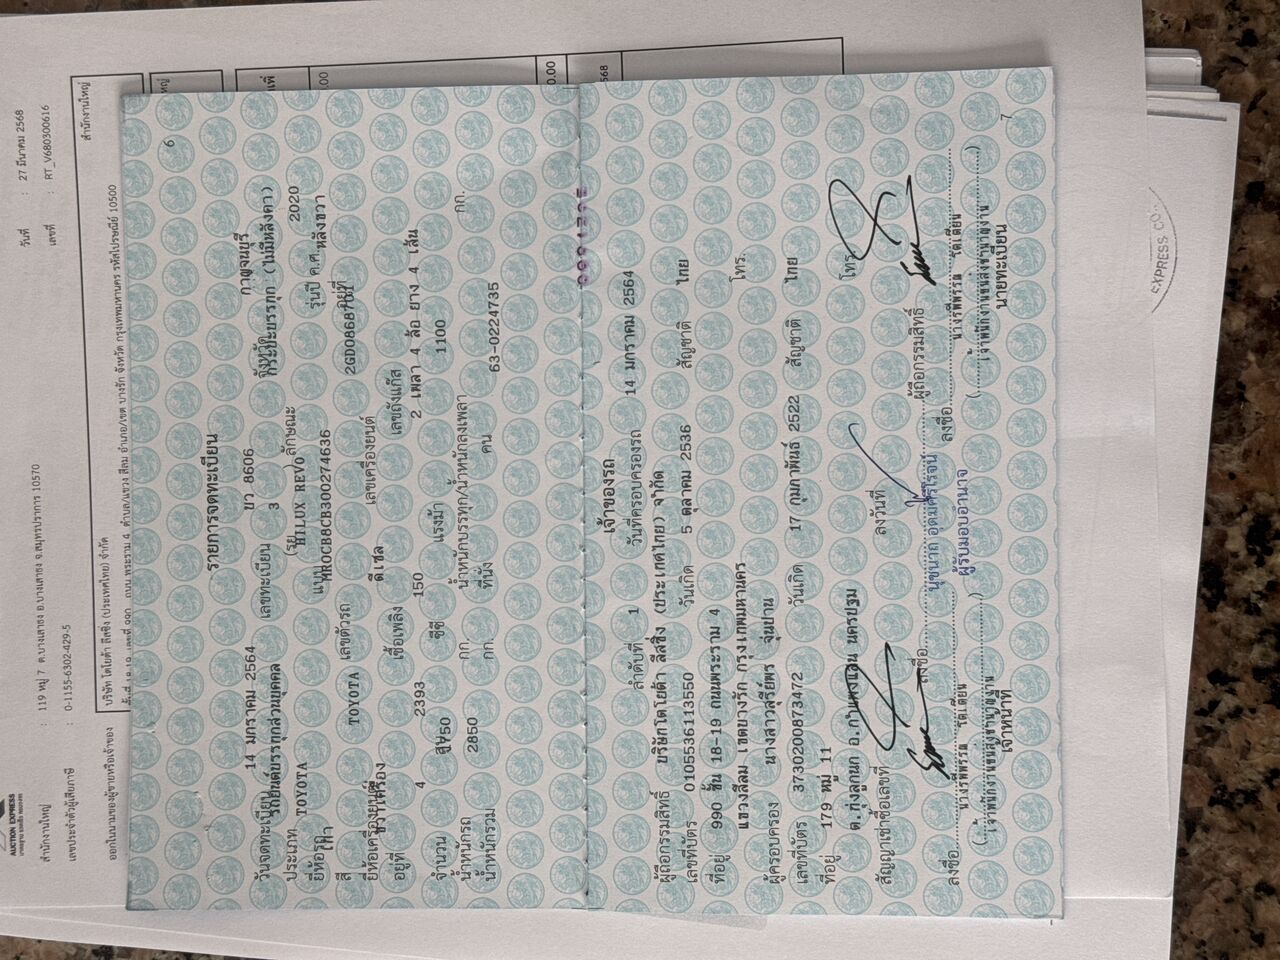 AUCTION EXPRESS
สำนักงานใหญ่ : 119 หมู่ 7 ต.บางเสาธง อ.บางเสาธง จ.สมุทรปราการ 10570
วันที่ : 27 มีนาคม 2568
เลขประจำตัวผู้เสียภาษี : 0-1155-6302-429-5
เลขที่ : RT_V680300616
ออกในนามของผู้ขายหรือเจ้าของ
บริษัท โตโยต้า ลีสซิ่ง (ประเทศไทย) จำกัด
สำนักงานใหญ่
ถนน พระราม 4 ตำบล/แขวง สีลม อำเภอ/เขต บางรัก จังหวัด กรุงเทพมหานคร รหัสไปรษณีย์ 10500
6
รายการจดทะเบียน
วันจดทะเบียน 14 มกราคม 2564 เลขทะเบียน ยว 8606 จังหวัด กาญจนบุรี
ประเภท รถยนต์บรรทุกส่วนบุคคล (รย. 3 ) ลักษณะ กระบะบรรทุก (ไม่มีหลังคา)
ยี่ห้อรถ TOYOTA แบบ HILUX REVO รุ่นปี ค.ศ. 2020
สี เทา เลขตัวรถ MR0CB8CB300274636 อยู่ที่ หลังขวา
ยี่ห้อเครื่องยนต์ TOYOTA เลขเครื่องยนต์ 2GD0868701
อยู่ที่ ขวาเครื่อง เชื้อเพลิง ดีเซล เลขถังแก๊ส
จำนวน 4 สูบ 2393 ซีซี 150 แรงม้า 2 เพลา 4 ล้อ ยาง 4 เส้น
น้ำหนักรถ 1750 กก. น้ำหนักบรรทุก/น้ำหนักลงเพลา 1100 กก.
น้ำหนักรวม 2850 กก. ที่นั่ง คน 63-0224735
เจ้าของรถ
ลำดับที่ 1 วันที่ครอบครองรถ 14 มกราคม 2564
ผู้ถือกรรมสิทธิ์ บริษัทโตโยต้า ลีสซิ่ง (ประเทศไทย) จำกัด
เลขที่บัตร 0105536113550 วันเกิด 5 ตุลาคม 2536 สัญชาติ ไทย
ที่อยู่ 990 ชั้น 18-19 ถนนพระราม 4
แขวงสีลม เขตบางรัก กรุงเทพมหานคร โทร.
ผู้ครอบครอง นางสาวสุรีย์พร ฉุ้นปาน
เลขที่บัตร 3730200873472 วันเกิด 17 กุมภาพันธ์ 2522 สัญชาติ ไทย
ที่อยู่ 179 หมู่ 11
ต.ทุ่งลูกนก อ.กำแพงแสน นครปฐม โทร.
สัญญาเช่าซื้อเลขที่ ลงวันที่
ลงชื่อ ผู้ถือกรรมสิทธิ์
ผู้รับมอบอำนาจ
ลงชื่อ
ลงชื่อ
(เจ้าพนักงานขนส่งชำนาญงาน)
(เจ้าพนักงานขนส่งชำนาญงาน)
เจ้าหน้าที่
นายทะเบียน
7
EXPRESS CO.